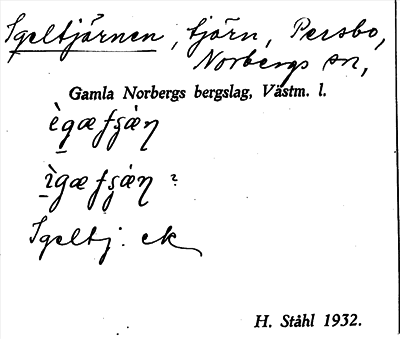 Igeltjärnen, tjärn, Persbo,
Norbergs sn,
Gamla Norbergs bergslag, Västm. l.
Igeltj. ek
H. Ståhl 1932.